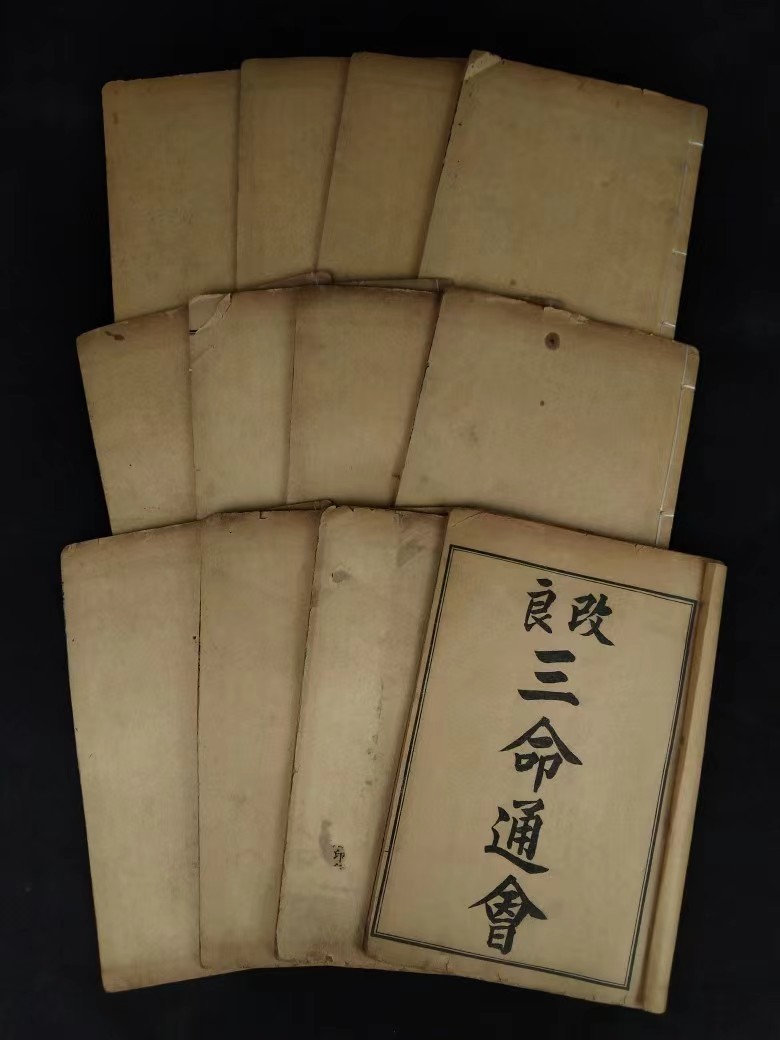 改良
三命通會
印